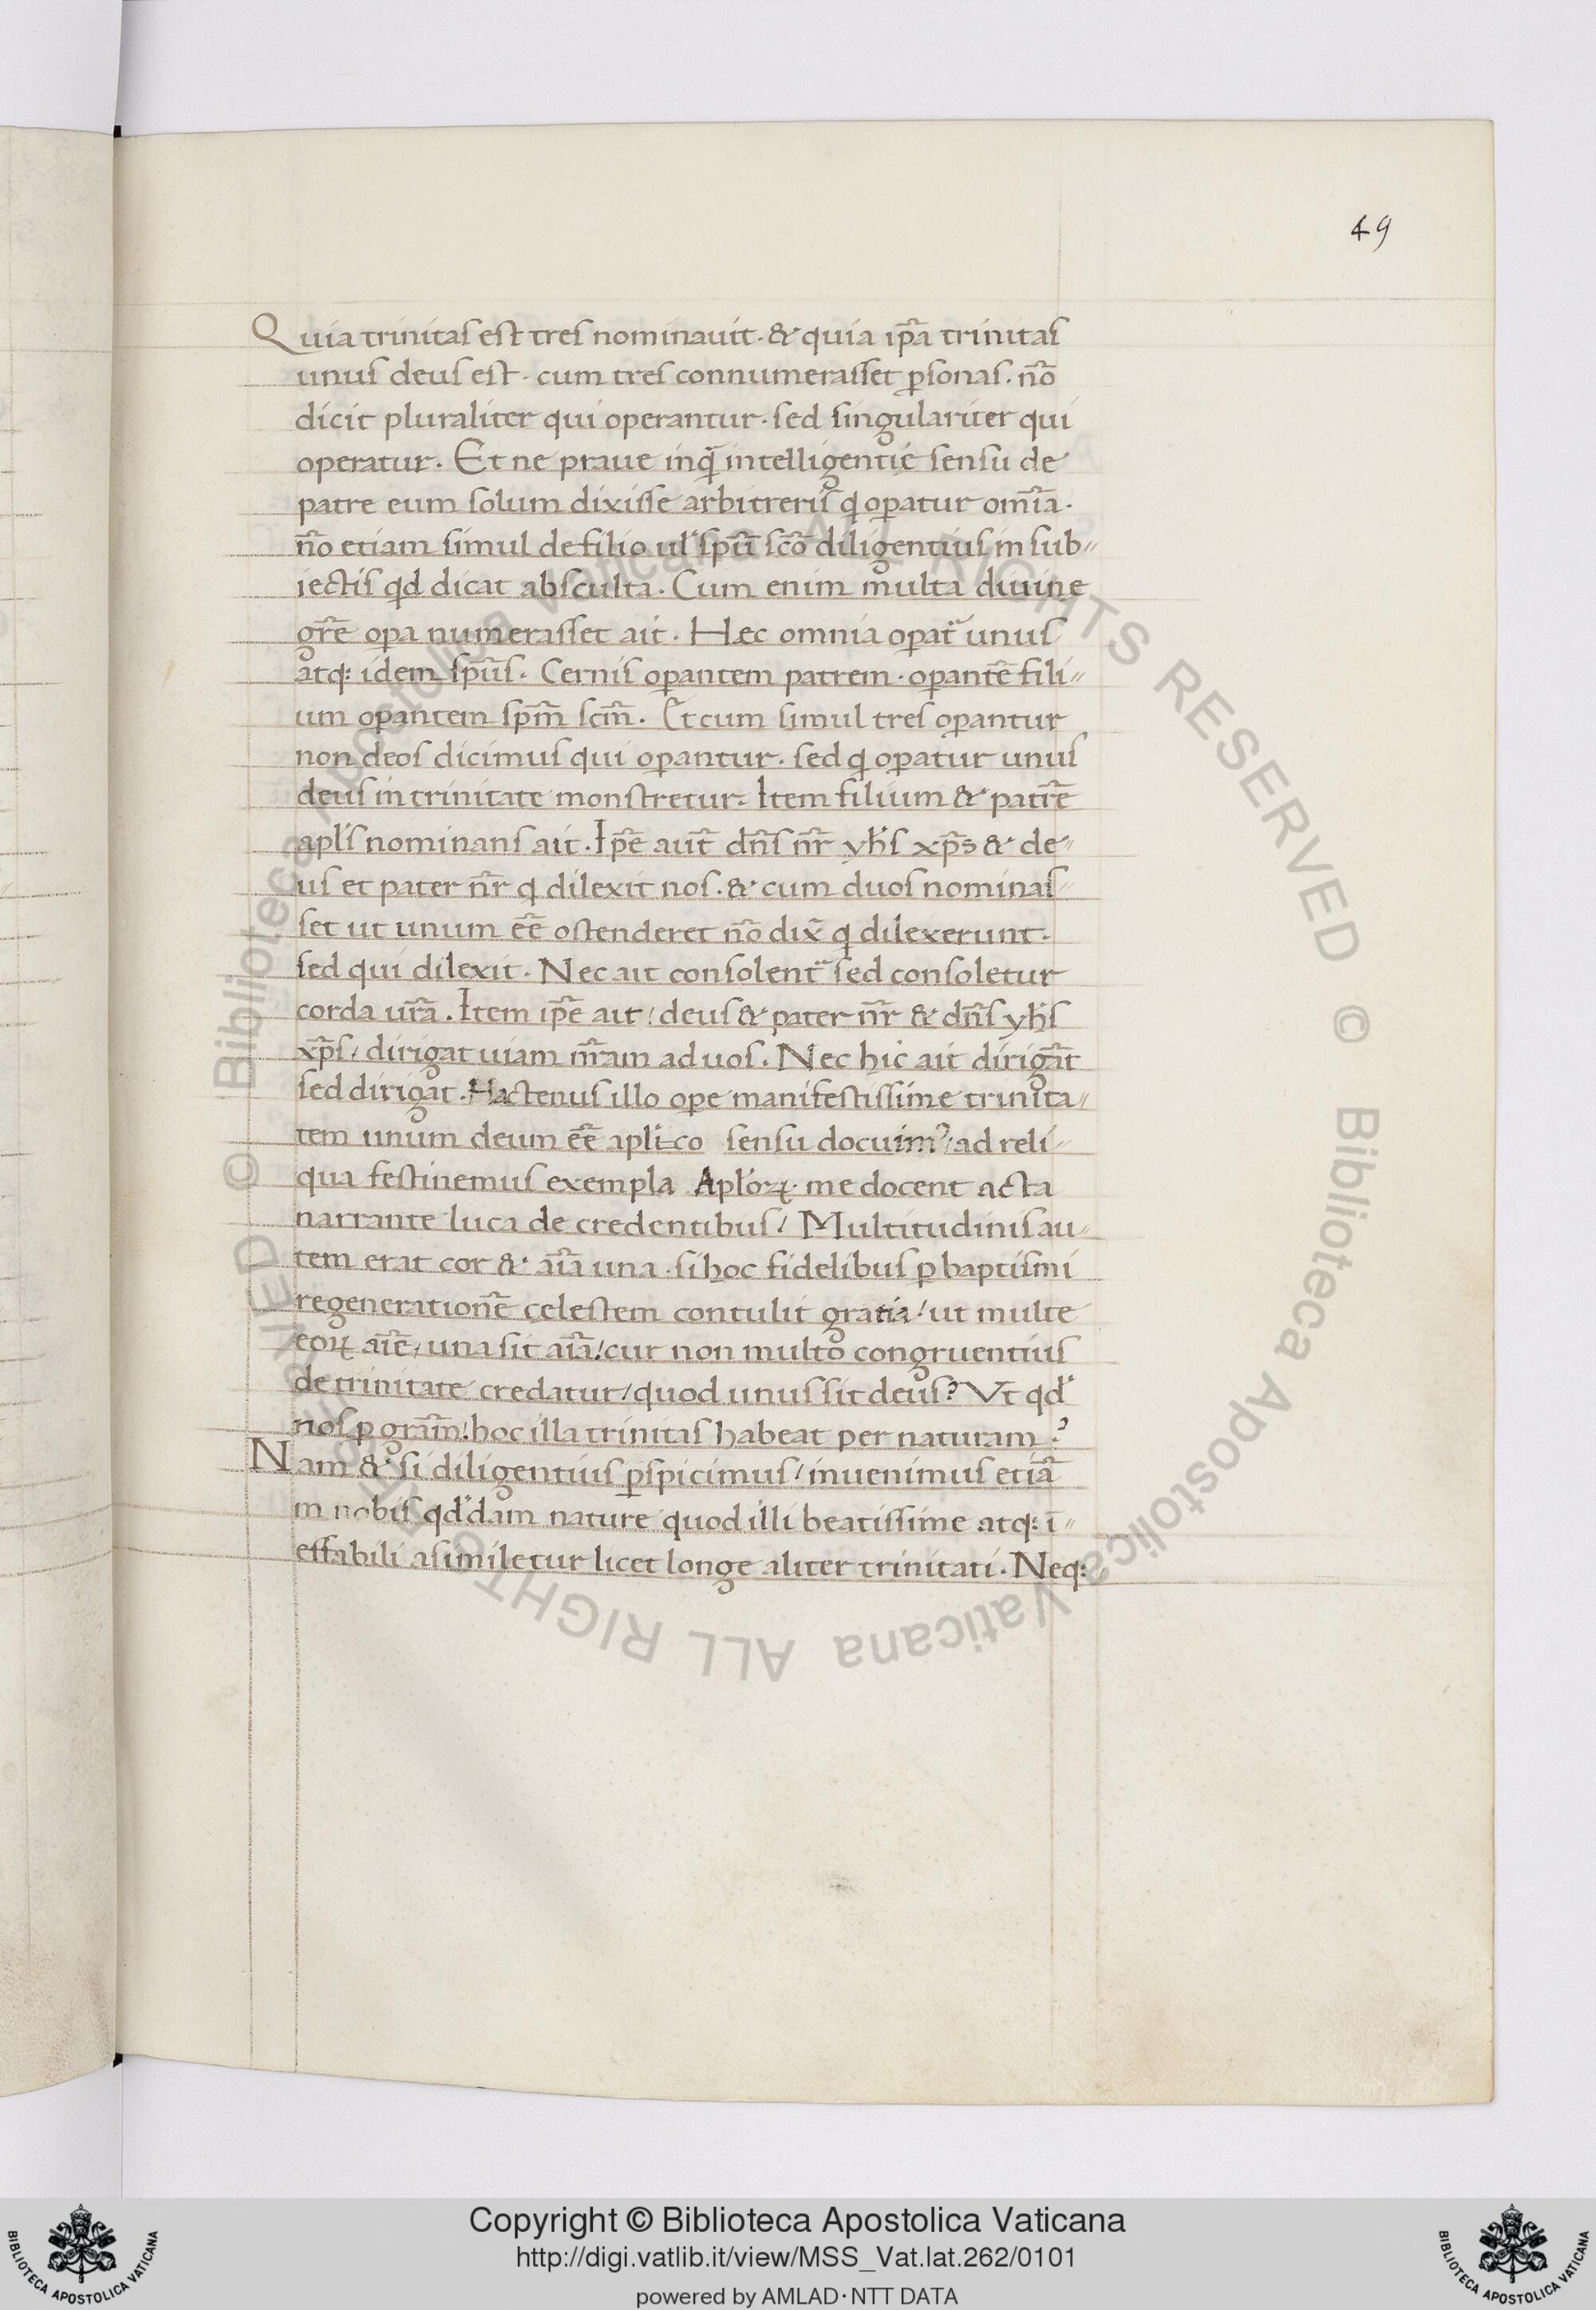 49
Quia trinitas est tres nominauit · & quia ip̃a trinitas
unus deus est · cum tres connumerasset ꝑsonas · nõ
dicit pluraliter qui operantur · sed singulariter qui
operatur · Et ne praue inq̃ intelligentię sensu de
patre eum solum dixisse arbitreris q̇ oꝑatur om̃ia ·
nõ etiam simul de filio ul' spũ scõ diligentius in sub〃
iectis qd dicat absculta · Cum enim multa diuine
gr̃e oꝑa numerasset ait · Hec omnia oꝑat᷑ unus
atq: idem sp̃us · Cernis oꝑantem patrem · oꝑantẽ fili〃
um oꝑantem sp̃m sc̃m · Et cum simul tres oꝑantur
non deos dicimus qui oꝑantur · sed q̇ oꝑatur unus
deus in trinitate monstretur · Item filium & patr̃e
apl's nominans ait · Ip̃e aut̃ dñs nr̃ yħs xp̃s & de〃
us et pater nr̃ q̇ dilexit nos · & cum duos nominas〃
set ut unum eẽ ostenderet nõ dix̃ q̇ dilexerunt ·
sed qui dilexit · Nec ait consolent᷑ sed consoletur
corda ur̃a · Item ip̃e ait / deus & pater nr̃ & dñs yħs
xp̃s / dirigat uiam nr̃am ad uos · Nec hic ait dirigãt
sed dirigat · Hactenus illo ope manifestissime trinita〃
tem unum deum eẽ apl'i-co sensu docuim⁹ / ad reli〃
qua festinemus exempla Apl'oꝝ · me docent acta
narrante luca de credentibus / Multitudinis au〃
tem erat cor & aĩa una · si hoc fidelibus ꝑ baptismi
regenerationẽ cęlestem contulit gratia / ut multe
eoꝝ aĩe / una sit aĩa / cur non multo congruentius
de trinitate credatur / quod unus sit deus? Vt qd'
nos ꝑ gr̃am / hoc illa trinitas habeat per naturam?
Nam & si diligentius ꝑspicimus / inuenimus etiã
in nobis qd'dam nature quod illi beatissime atq: ĩ〃
effabili asimiletur licet longe aliter trinitati · Neq:
Copyright © Biblioteca Apostolica Vaticana
http://digi.vatlib.it/view/MSS_Vat.lat.262/0101
powered by AMLAD·NTT DATA
BIBLIOTECA APOSTOLICA VATICANA
BIBLIOTECA APOSTOLICA VATICANA
© Biblioteca Apostolica Vaticana ALL RIGHTS RESERVED © Biblioteca Apostolica Vaticana ALL RIGHTS RESERVED